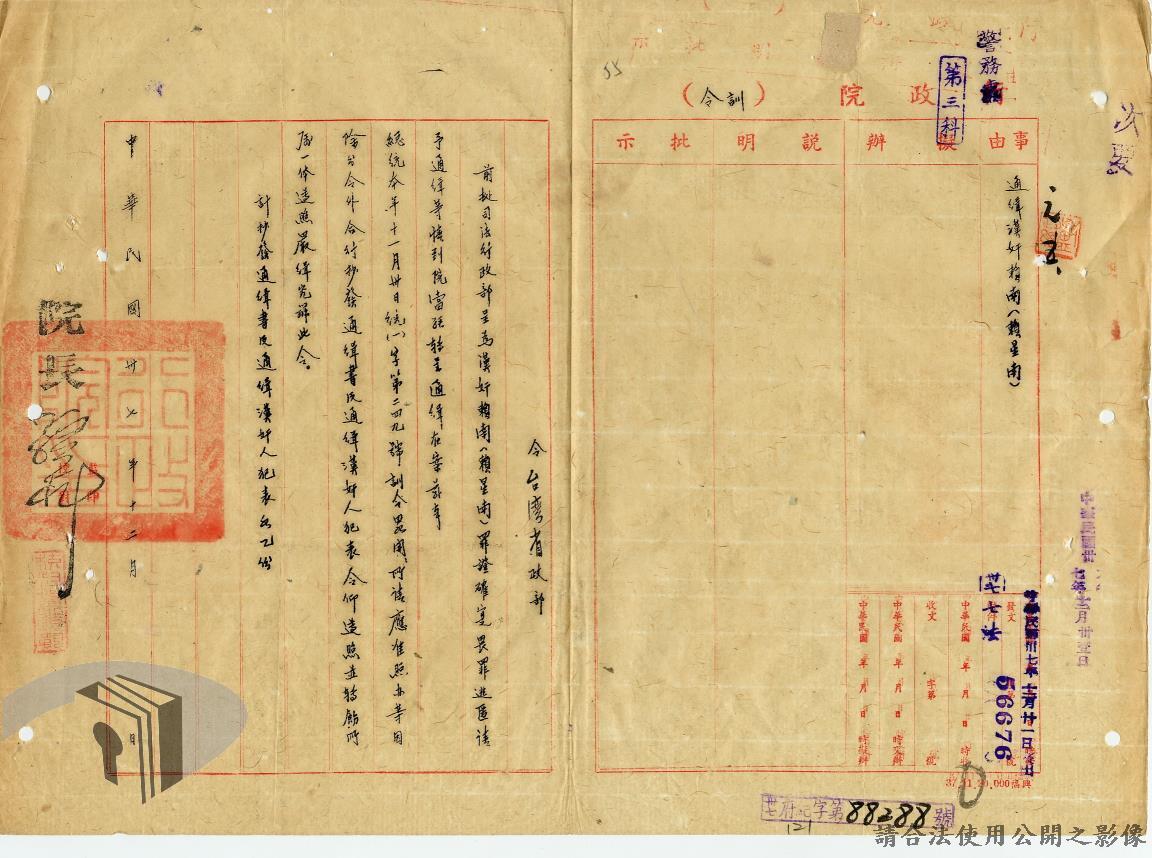 警務處
第三科
行政院（訓令）
55
事由
擬辦
說明
批示
通緝漢奸賴南（賴星南）
中華民國卅七年十二月廿一日發出
發文
卅七法
56676
收文 字第 號
中華民國 年 月 日 時
中華民國 年 月 日 時交辦
中華民國 年 月 日 時擬辦
37.11.20,000福興
卅七府 字第88288號
121
令台灣省政府
前據司法行政部呈為漢奸賴南（賴星南）罪證確寔畏罪逃匿請
予通緝等情到院當經轉呈通緝在案茲奉
總統本年十一月卅日統(一)字第二四九號訓令畧開所請應准照办等因
除分令外合行抄發通緝書及通緝漢奸人犯表令仰遵照並轉飭所
屬一体遵照嚴緝究辦此令。
計抄發通緝書及通緝漢奸人犯表各乙份
中華民國卅七年十二月 日
院長孫科
請合法使用公開之影像